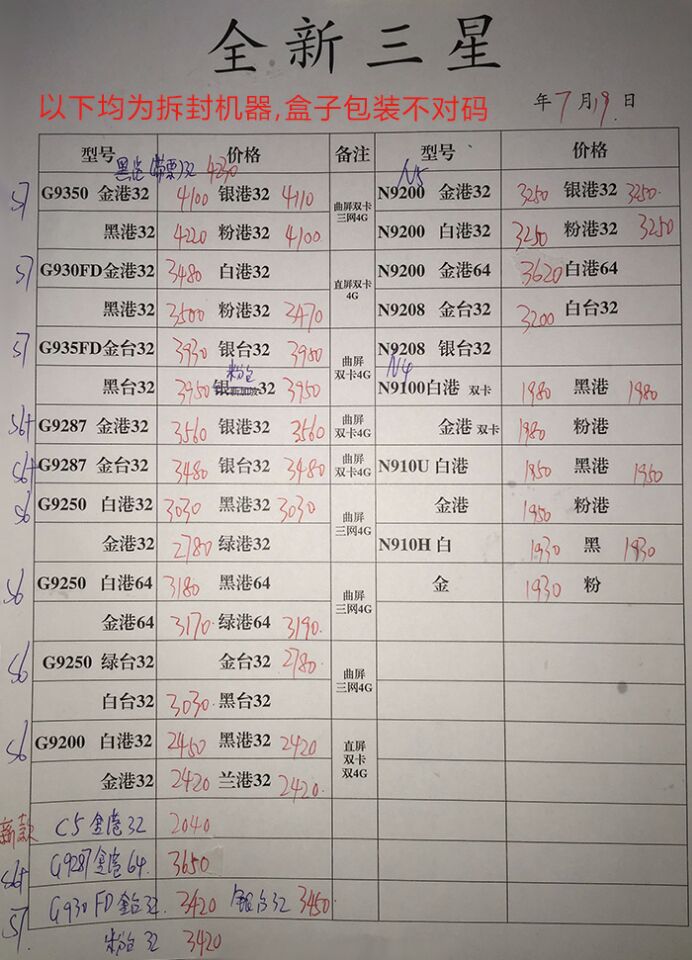 全新三星
以下均为拆封机器,盒子包装不对码
年7月19日
型号 价格 备注 型号 价格
黑港(带票)32 4230
S7 G9350 金港32 4100 银港32 4110 曲屏双卡三网4G N5 N9200 金港32 3250 银港32 3250
黑港32 4220 粉港32 4100 N9200 白港32 3250 粉港32 3250
S7 G930FD金港32 3480 白港32 直屏双卡4G N9200 金港64 3620 白港64
黑港32 3500 粉港32 3470 N9208 金台32 3200 白台32
S7 G935FD金台32 3930 银台32 3950 曲屏双卡4G N9208 银台32
黑台32 3950 粉台32 3950 N4 N9100白港 双卡 1980 黑港 1980
S6+ G9287 金港32 3560 银港32 3560 曲屏双卡4G 金港 双卡 1980 粉港
S6+ G9287 金台32 3480 银台32 3480 曲屏双卡4G N910U 白港 1950 黑港 1950
S6 G9250 白港32 3030 黑港32 3030 曲屏三网4G 金港 1950 粉港
金港32 2780 绿港32 N910H 白 1930 黑 1930
S6 G9250 白港64 3180 黑港64 曲屏三网4G 金 1930 粉
金港64 3170 绿港64 3190
S6 G9250 绿台32 金台32 2780 曲屏三网4G
白台32 3030 黑台32
S6 G9200 白港32 2450 黑港32 2420 直屏双卡双4G
金港32 2420 兰港32 2420
新款 C5 金港32 2040
S6+ G9287金港64 3650
S7 G930FD金台32 3420 银台32 3450
粉台32 3420